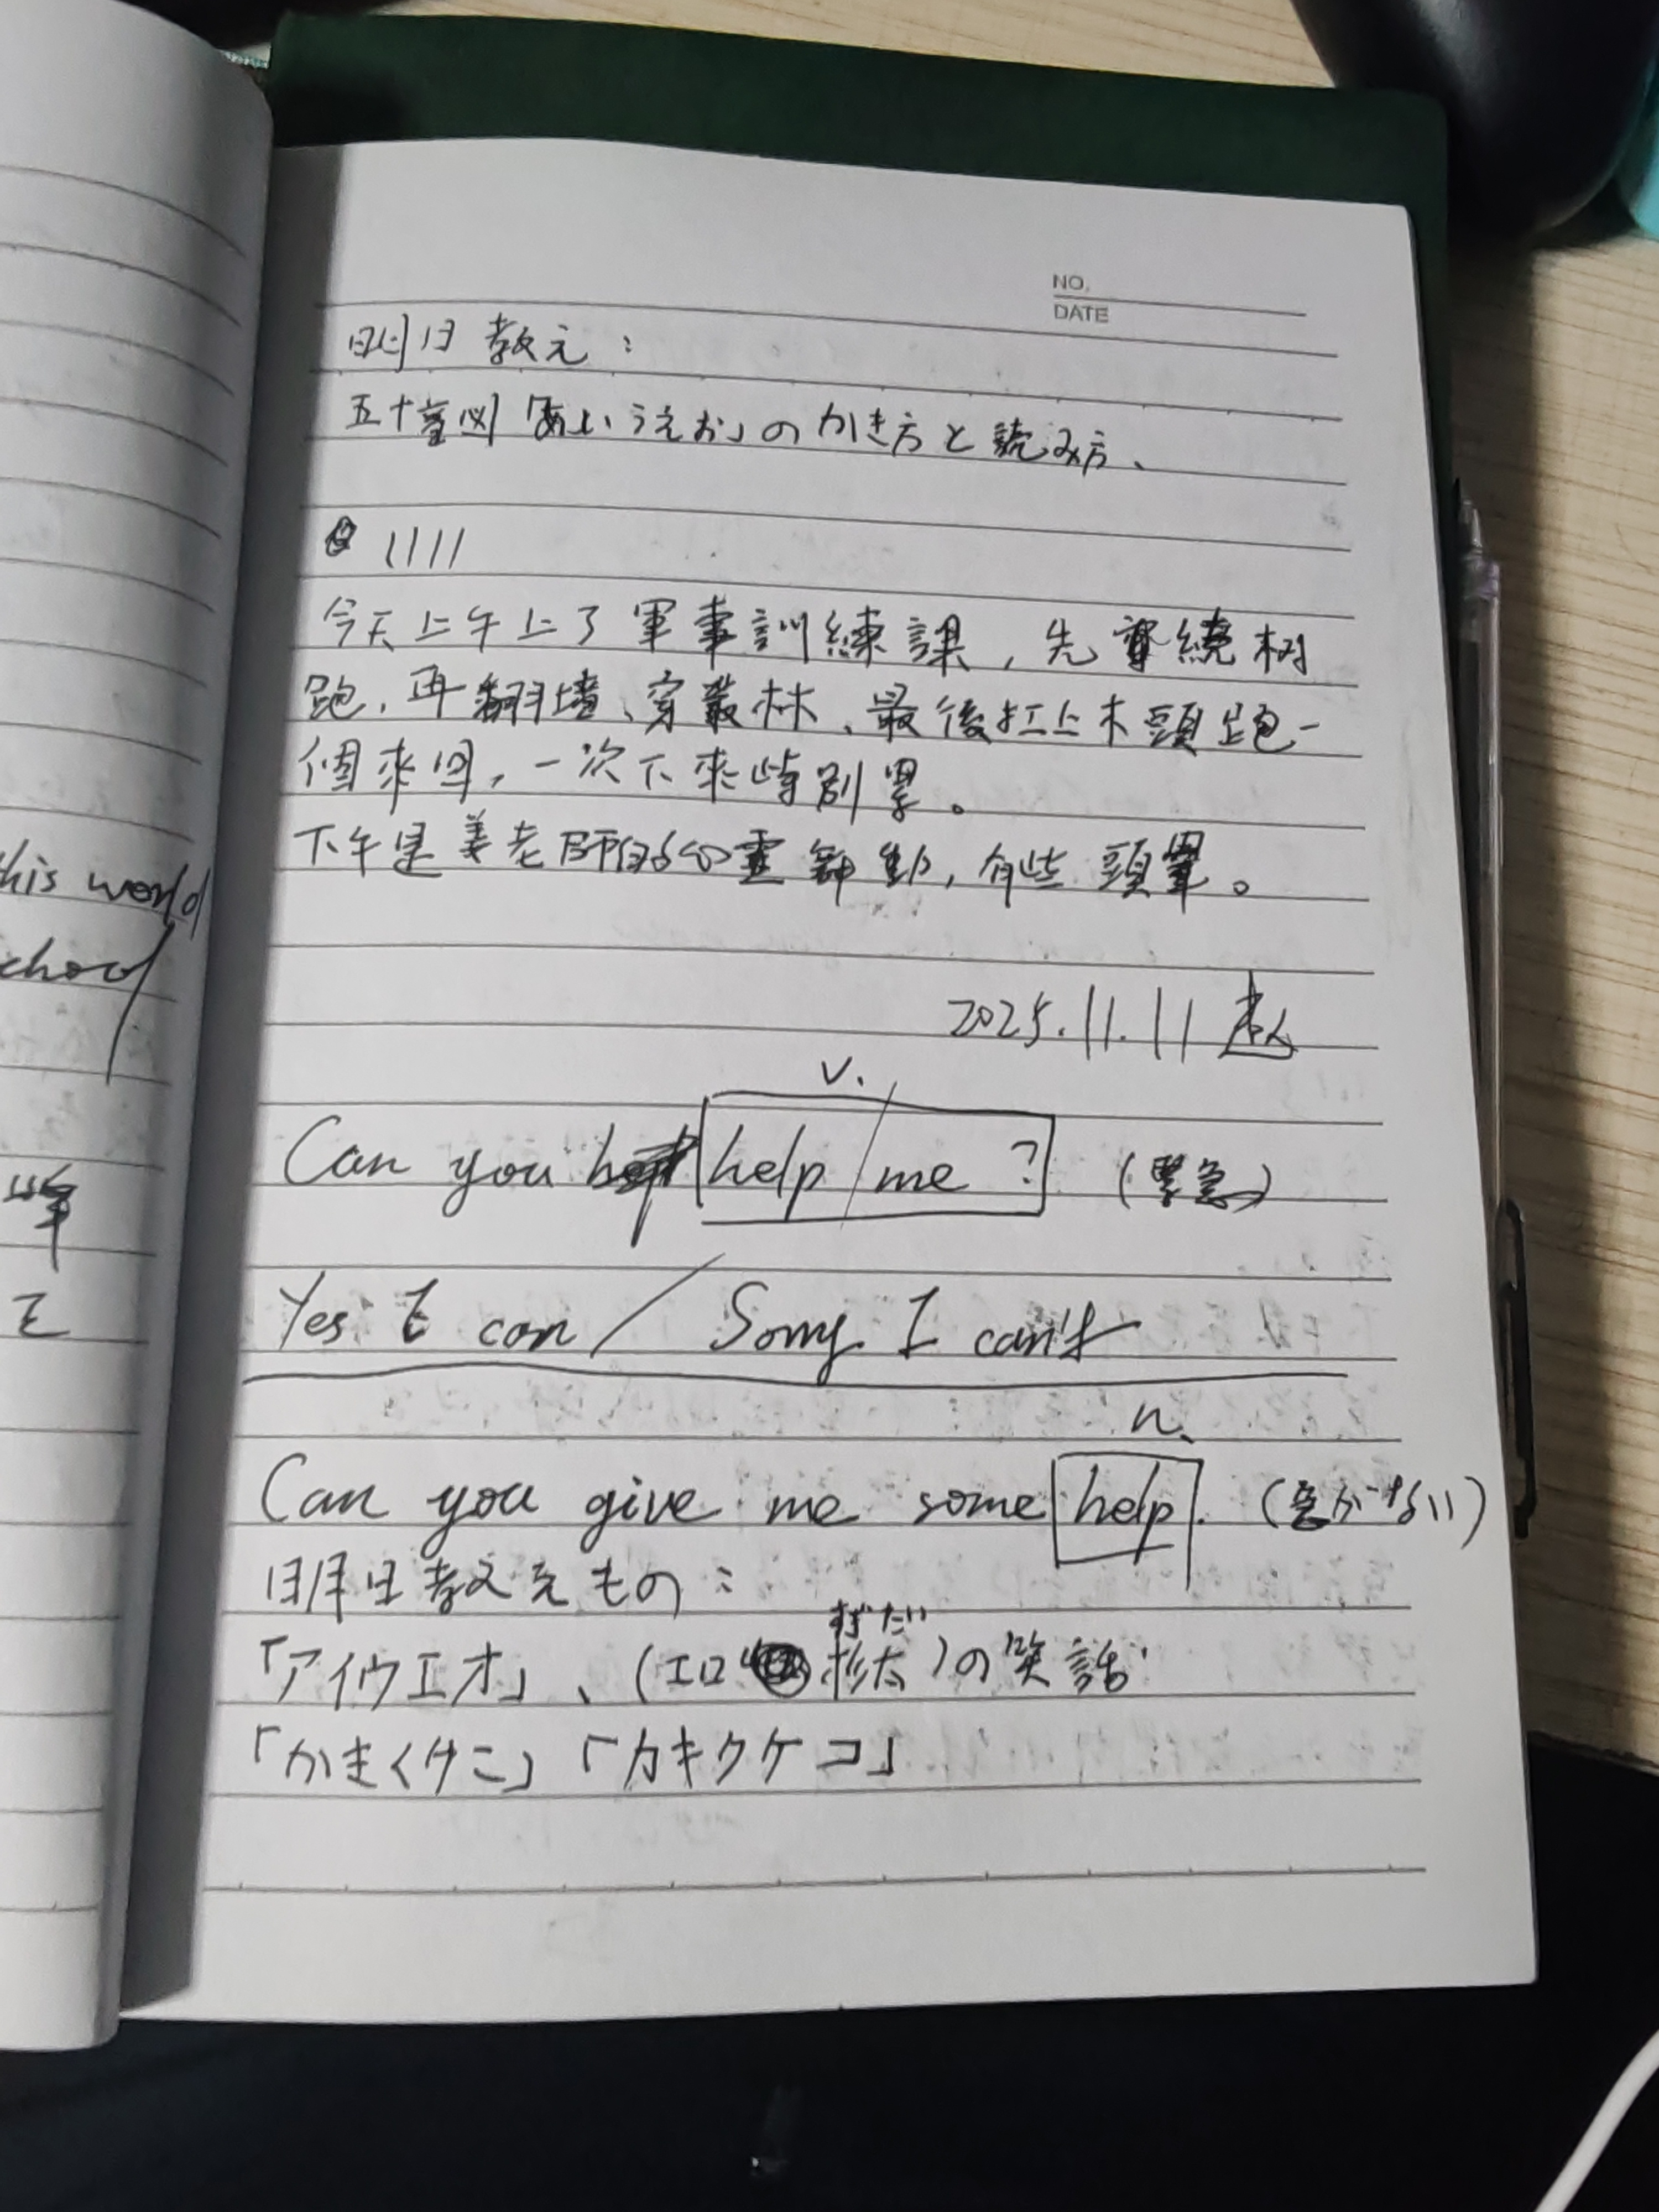 NO.
DATE
明日教え:
五十音図「あいうえお」のかき方と読み方、
1111
今天上午上了軍事訓練課,先繞树
跑,再翻墻、穿叢林、最後扛上木頭跑一
個來回,一次下來特別累。
下午是姜老師的心靈舞動,有些頭暈。
2025.11.11
his world
v.
Can you help me ? (緊急)
Yes I can / Sorry I can't
n.
Can you give me some help. (急がない)
明日教えもの:
すぎたい
「アイウエオ」、(エロ 杉太)の笑話
「かきくけこ」「カキクケコ」